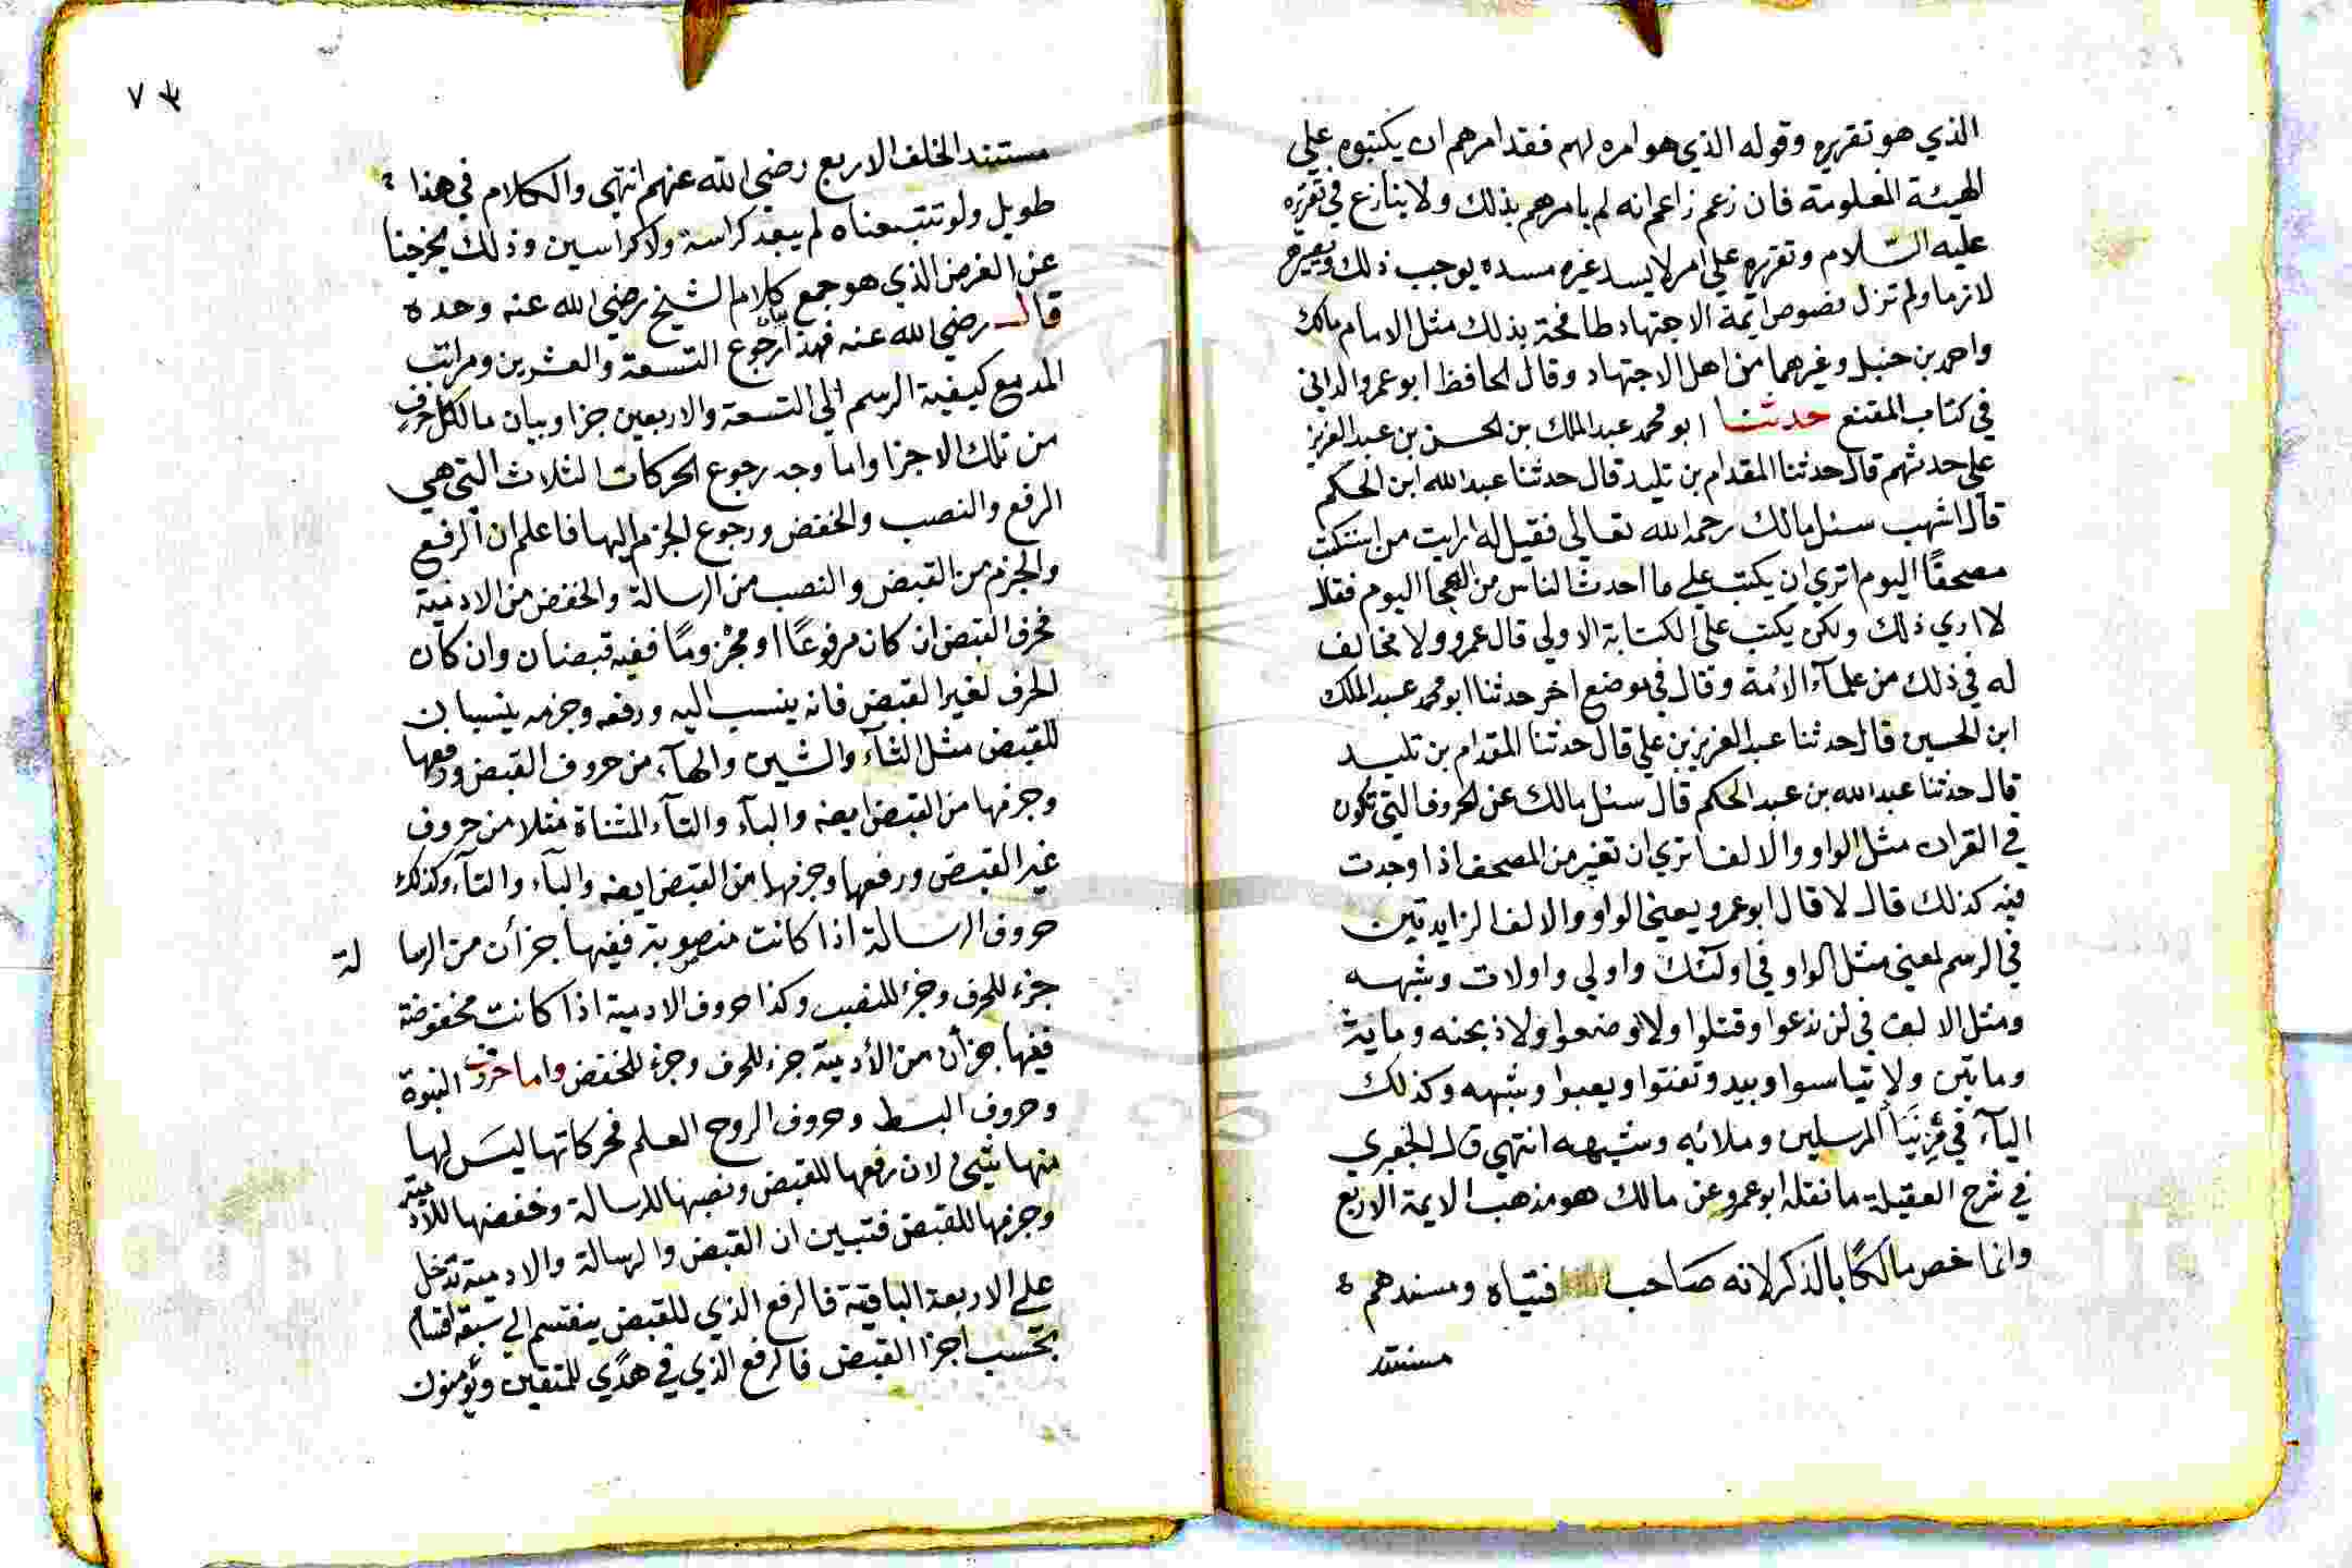 الذي هو تقريره وقوله الذي هو امره لهم فقد امرهم ان يكتبوه علي
الهيئة المعلومة فان زعم زاعم انه لم يامرهم بذلك ولا ينازع في تقريره
عليه السّلام وتقريره علي امر لا يسد غيره مسده يوجب ذلك ويصيره
لازما ولم تزل نصوص ايمة الاجتهاد طافحة بذلك مثل الامام مالك
واحمد بن حنبل وغيرهما من اهل الاجتهاد وقال الحافظ ابو عمرو الداني
في كتاب المقنع حدثنا ابو محمد عبد الملك بن الحسن بن عبد العزيز
علي حدثهم قال حدثنا المقدام بن تليد قال حدثنا عبد الله ابن الحكم
قال اشهب سئل مالك رحمه الله تعالي فقيل له ارايت من استكتب
مصحفًا اليوم اتري ان يكتب علي ما احدث الناس من الهجا اليوم فقال
لا اري ذلك ولكن يكتب علي الكتابة الاولي قال عمرو ولا مخالف
له في ذلك من علمآء الأمة وقال في موضع اخر حدثنا ابو محمد عبد الملك
ابن الحسين قال حدثنا عبد العزيز بن علي قال حدثنا المقدام بن تليد
قال حدثنا عبد الله بن عبد الحكم قال سئل مالك عن الحروف التي تكون
في القران مثل الواو والالف اتري ان تغير من المصحف اذا وجدت
فيه كذلك قال لا قال ابو عمرو يعني الواو والالف الزايدتين
في الرسم لمعني مثل الواو في اولئك واولي واولات وشبهه
ومثل الالف في لن ندعوا وقتلوا ولاوضعوا ولاذبحنه وماية
ومايتين ولا تيأسوا ويبدو وتفتوا ويعبوا وشبهه وكذلك
اليآء في مِن نَبَإِ المرسلين وملائه وشبهه انتهي قال الجعبري
في شرح العقيلة ما نقله ابو عمرو عن مالك هو مذهب الايمة الاربع
وانما خص مالكًا بالذكر لانه صاحب فتياه ومسندهم
مستند
٧٣
مستند الخلف الاربع رضي الله عنهم انتهي والكلام في هذا
طويل ولو تتبعناه لم يبعد كراسة ولا كراسين وذلك يخرجنا
عن الغرض الذي هو جمع كلام الشيخ رضي الله عنه وحده
قال رضي الله عنه فهذا بيان رجوع التسعة والعشرين ومراتب
المد مع كيفية الرسم الي التسعة والاربعين جزا وبيان ما لكل حرف
من تلك الاجزا واما وجه رجوع الحركات الثلاث التي هي
الرفع والنصب والخفض ورجوع الجزم اليها فاعلم ان الرفع
والجزم من القبض والنصب من الرسالة والخفض من الادمية
فحرف القبض ان كان مرفوعًا او مجزومًا ففيه قبضان وان كان
الحرف لغير القبض فانه ينسب اليه ورفعه وجزمه ينسبان
للقبض مثل الثآء والشين والهآء من حروف القبض ورفعها
وجزمها من القبض ايضه والبآء والتآء المثناة مثلا من حروف
غير القبض ورفعها وجزمها من القبض ايضه والبآء والتآء وكذلك
حروف الرسالة اذا كانت منصوبة ففيها جزأن من الرسا لة
جزء للحرف وجزء للنصب وكذا حروف الادمية اذا كانت مخفوضة
ففيها جزأن من الأدمية جزء للحرف وجزء للخفض واما حروف النبوة
وحروف البسط وحروف الروح العلم فحركاتها ليسَ لها
منها شيئ لان رفعها للقبض ونصبها للرسالة وخفضها للادمية
وجزمها للقبض فتبين ان القبض والرسالة والادمية تدخل
علي الاربعة الباقية فالرفع الذي للقبض ينقسم الي سبعة اقسام
بحسب اجزا القبض فالرفع الذي في هدًي للمتقين ويُومنون